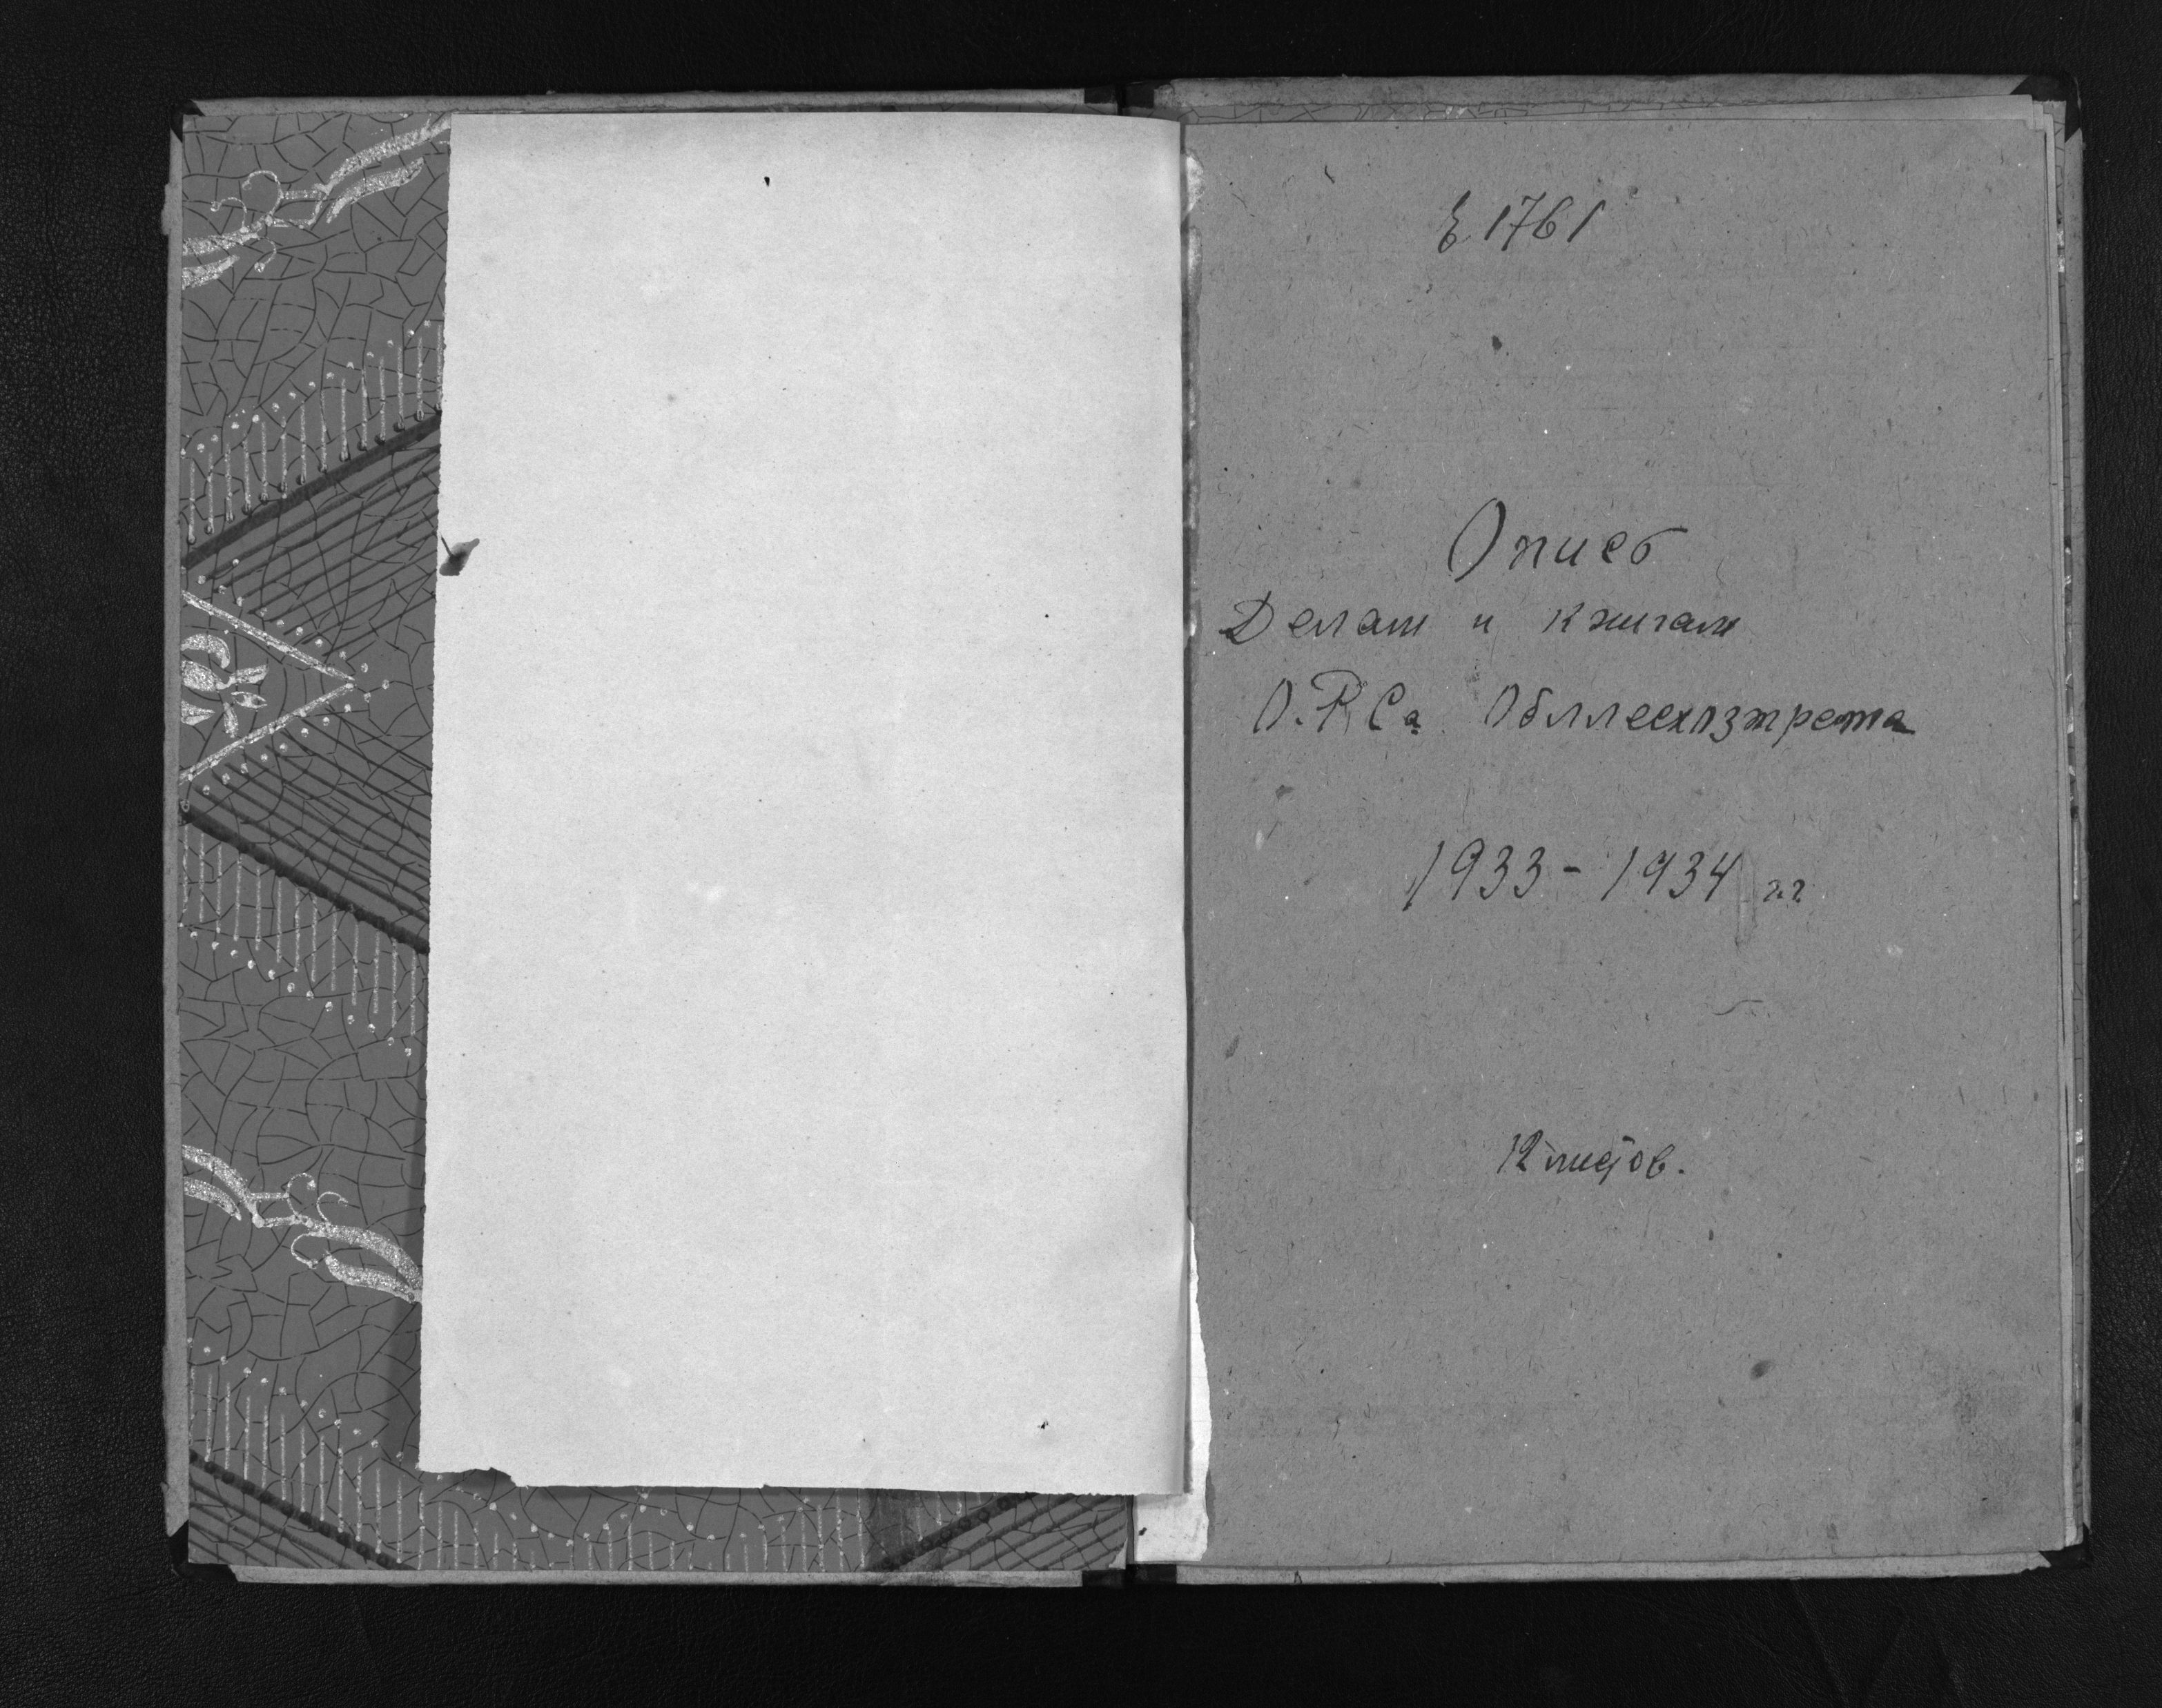 1761
Опись
Делам и книгам
О.Р.Са. Обллесхозтреста
1933 - 1934 г.г.
12 листов.